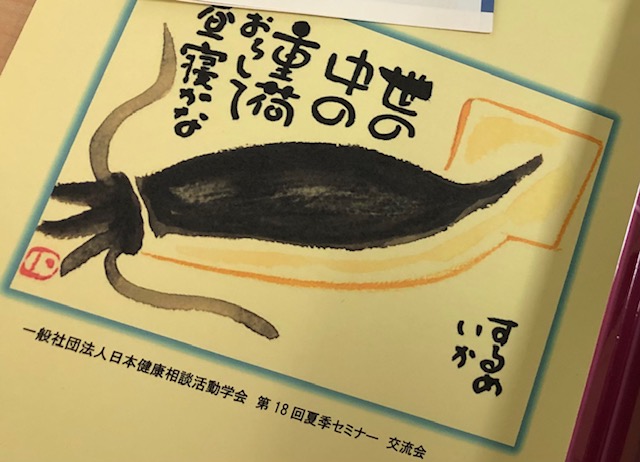 世の
中の
重荷
おろして
昼寝かな
するめ
いか
一般社団法人日本健康相談活動学会 第18回夏季セミナー 交流会